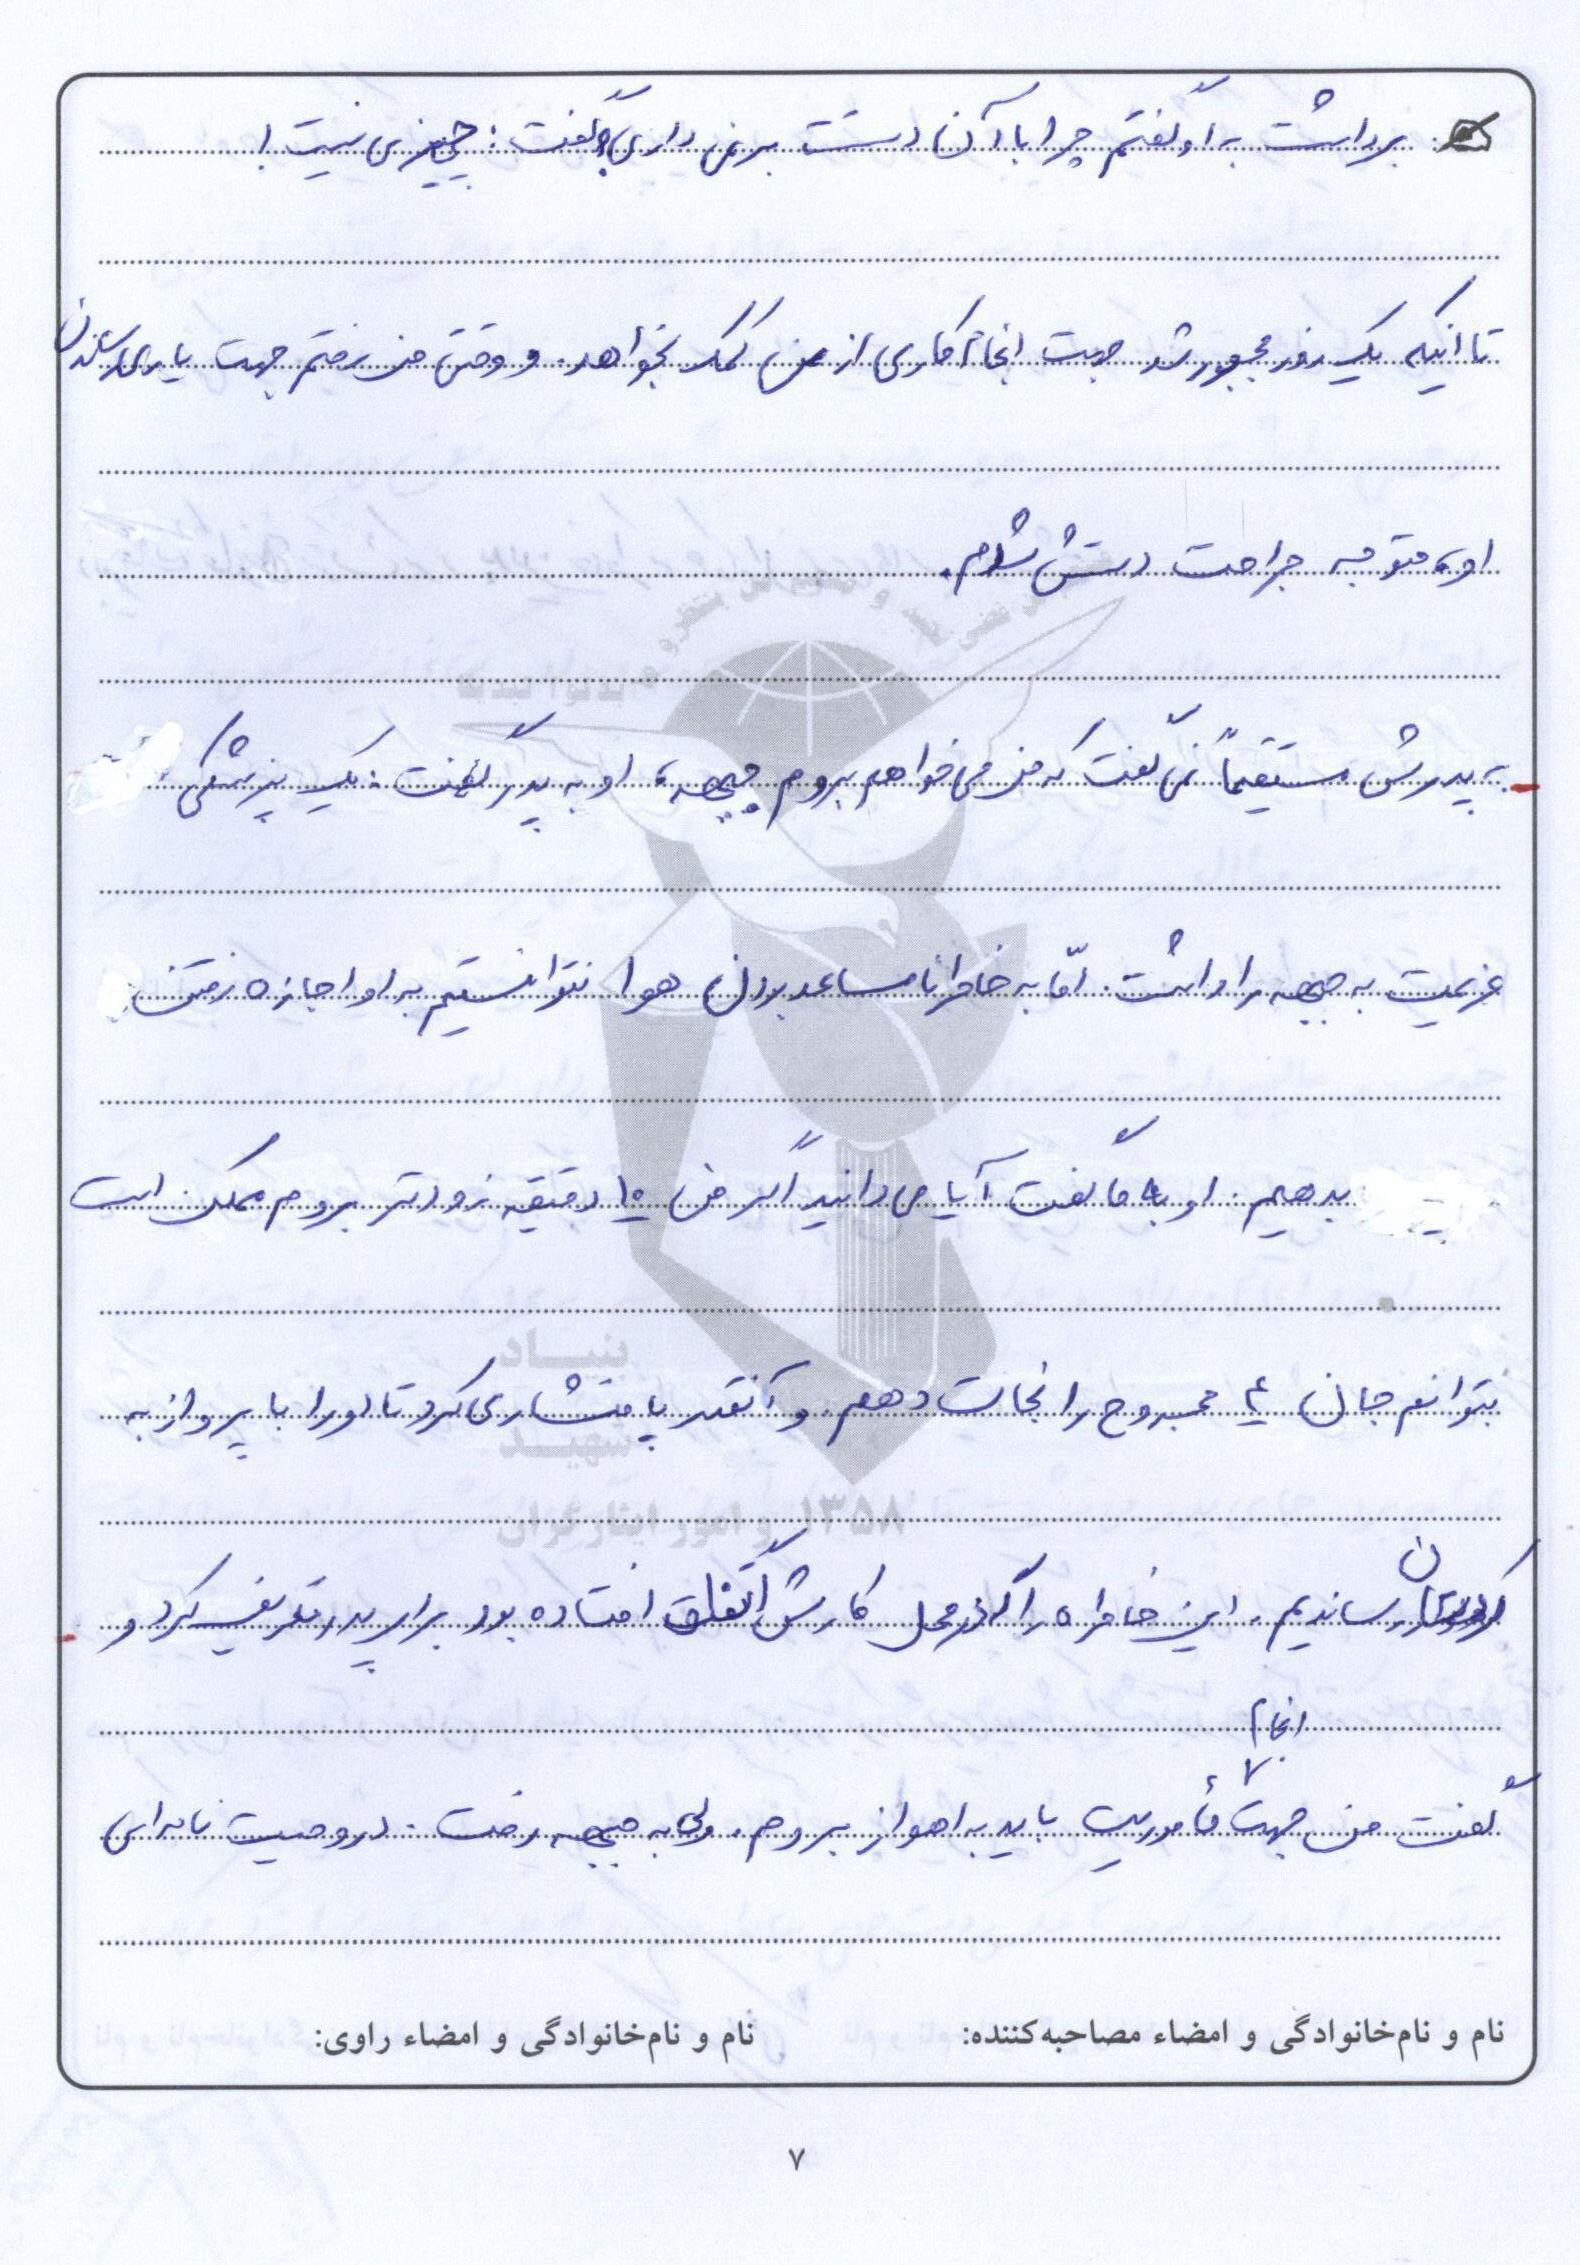 برداشت به او گفتم چرا با آن دست برنمی داری؟ گفت: چیزی نیست!
تا اینکه یک روز مجبور شد جهت انجام کاری از من کمک بخواهد. و وقتی من رفتم جهت یاری رساندن
او، متوجه جراحت دستش شدم.
به پدرش مستقیماً نمی گفت که من می خواهم بروم جبهه، او به پدر گفت: یک پزشکی
عزیمت به جبهه را داشت. امّا به خاطر نامساعد بودن هوا نتوانستیم به او اجازه رفتن
بدهیم. او به ما گفت آیا می دانید اگر من ۱۰ دقیقه زودتر بروم ممکن است
بتوانم جان ۴ مجروح را نجات دهم. و آنقدر پافشاری کرد تا او را با پرواز به
کردستان رساندیم. این خاطره را که در محل کارش اتفاق افتاده بود برای پدر تعریف کرد و
انجام
گفت من جهت مأموریت باید به اهواز بروم. ولی به جبهه رفت. در وصیت نامه اش
بنیاد
شهید
و امور ایثارگران ۱۳۵۸
نام و نام‌خانوادگی و امضاء مصاحبه‌کننده: نام و نام‌خانوادگی و امضاء راوی:
۷